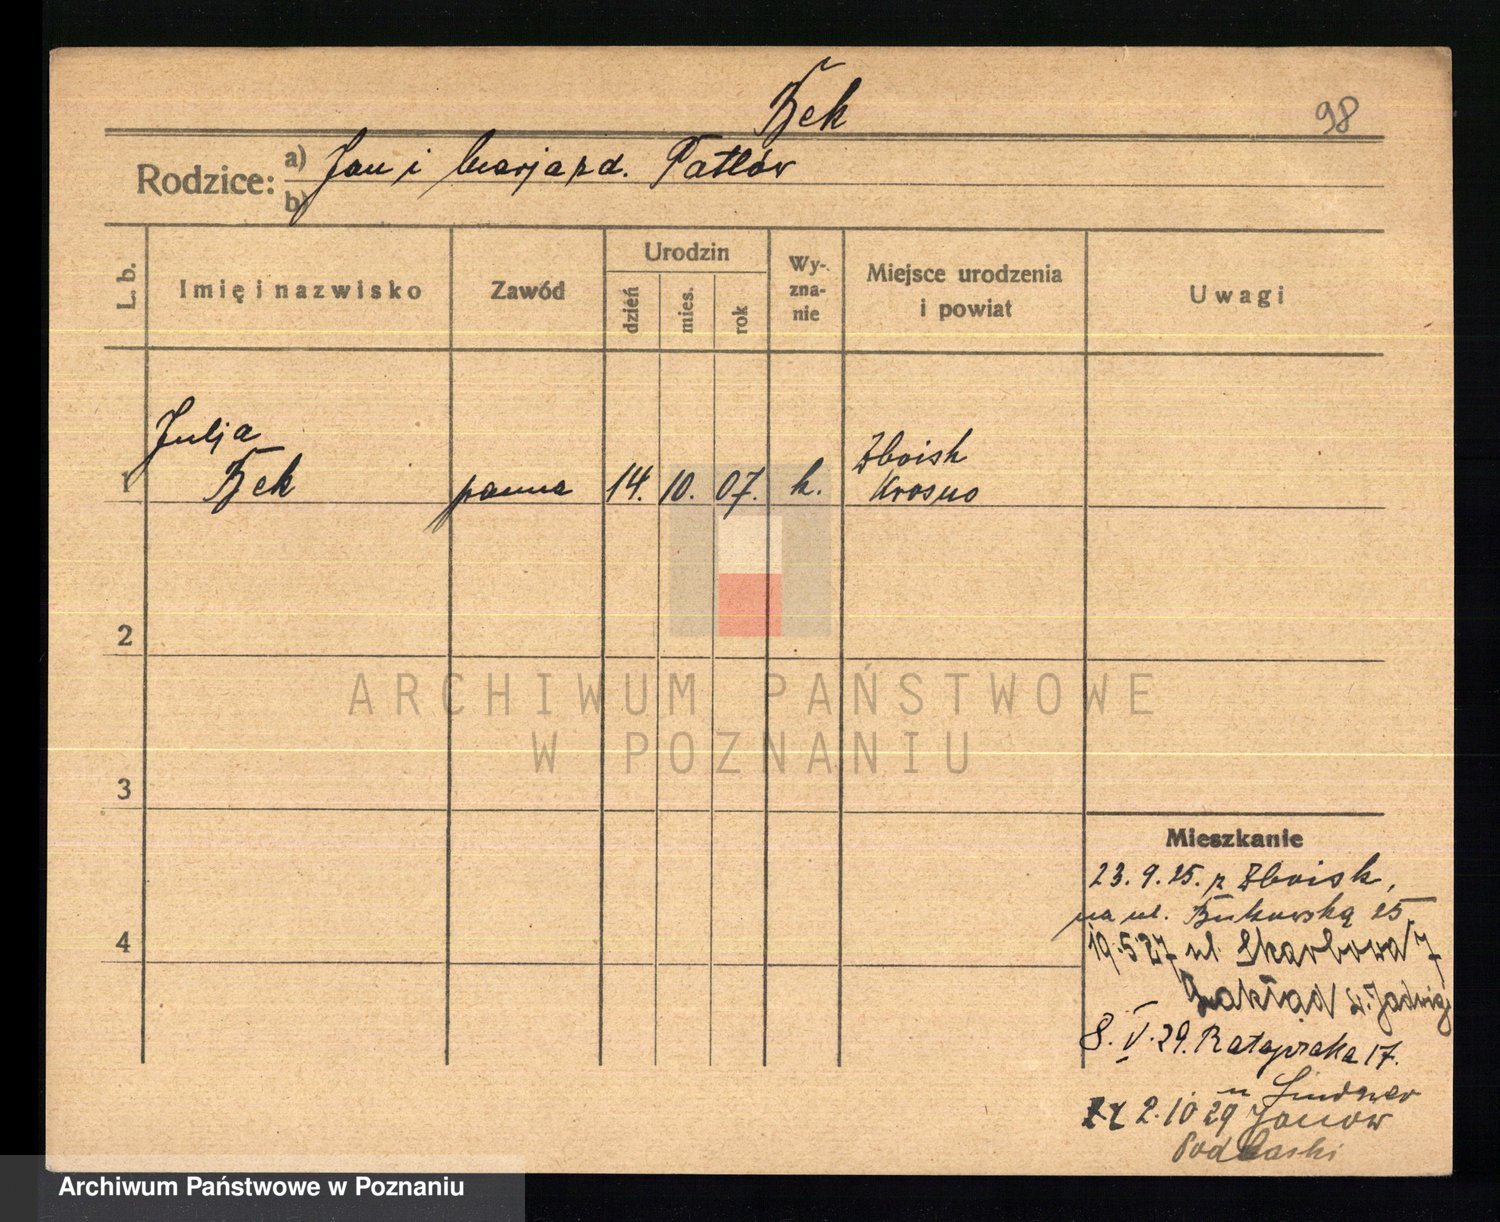 Bek
98
Rodzice: a) Jan i Marja z d. Patłów
b)
L. b.
Imię i nazwisko
Zawód
Urodzin
dzień
mies.
rok
Wy-
zna-
nie
Miejsce urodzenia
i powiat
Uwagi
1
Julja
Bek
panna
14.
10.
07.
k.
Zboisk
Krosno
2
3
4
ARCHIWUM PAŃSTWOWE
W POZNANIU
Mieszkanie
23.9.25. z Zboisk,
na ul. Bukowską 25
19.5 27 ul Skarbowa 7
Zakład św. Jadwigi
8. V. 29. Ratajczaka 17.
u Lindner
2.10 29 Janow
Podlaski
Archiwum Państwowe w Poznaniu